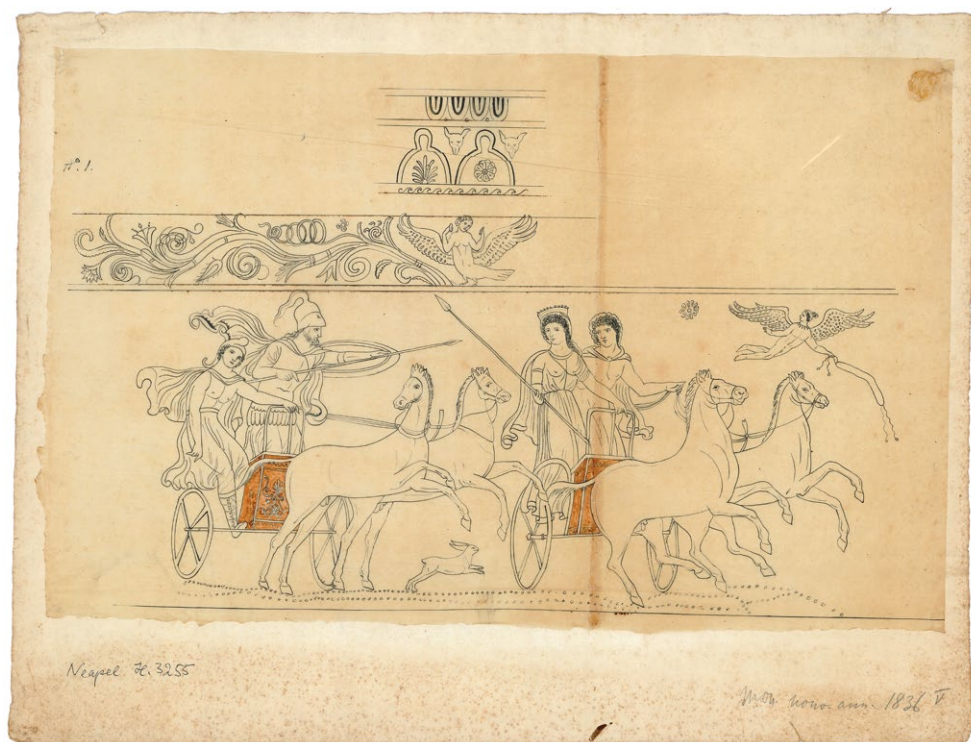 Nº. 1.
Neapel. H. 3255
Mon. nouv. ann. 1836 V